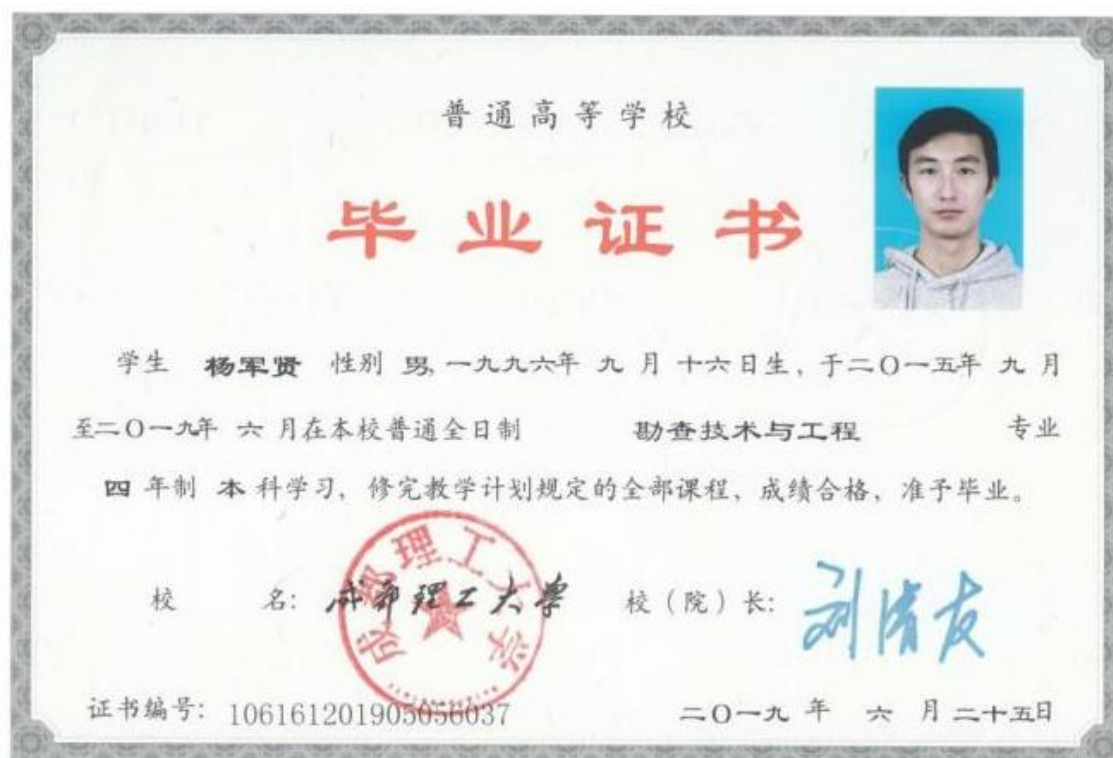 普通高等学校
毕业证书
学生 杨军贤 性别 男, 一九九六年 九 月 十六日生, 于二〇一五年 九 月
至二〇一九年 六 月在本校普通全日制 勘查技术与工程 专业
四 年制 本 科学习, 修完教学计划规定的全部课程, 成绩合格, 准予毕业。
成都理工大学
校 名: 成都理工大学 校(院)长: 刘清友
证书编号: 106161201905056037 二〇一九 年 六 月 二十五日